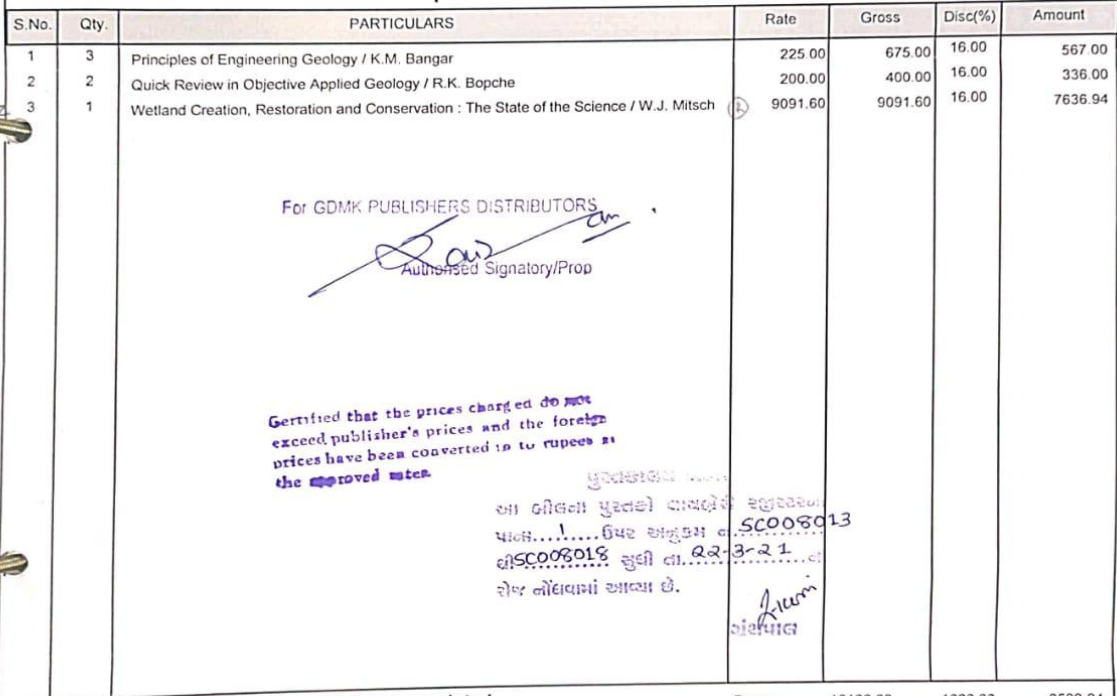 S.No. Qty. PARTICULARS Rate Gross Disc(%) Amount
1 3 Principles of Engineering Geology / K.M. Bangar 225.00 675.00 16.00 567.00
2 2 Quick Review in Objective Applied Geology / R.K. Bopche 200.00 400.00 16.00 336.00
3 1 Wetland Creation, Restoration and Conservation : The State of the Science / W.J. Mitsch 9091.60 9091.60 16.00 7636.94
For GDMK PUBLISHERS DISTRIBUTORS
Authorised Signatory/Prop
Certified that the prices charged do not
exceed publisher's prices and the foreign
prices have been converted in to rupees at
the approved rates.
પુસ્તકાલય
આ બીલના પુસ્તકો લાયબ્રેરી રજીસ્ટરના
પાના....1....ઉપર અનુક્રમ નં.SC008013
થીSC008018 સુધી તા.22-3-21
રોજ નોંધવામાં આવ્યા છે.
ગ્રંથપાલ